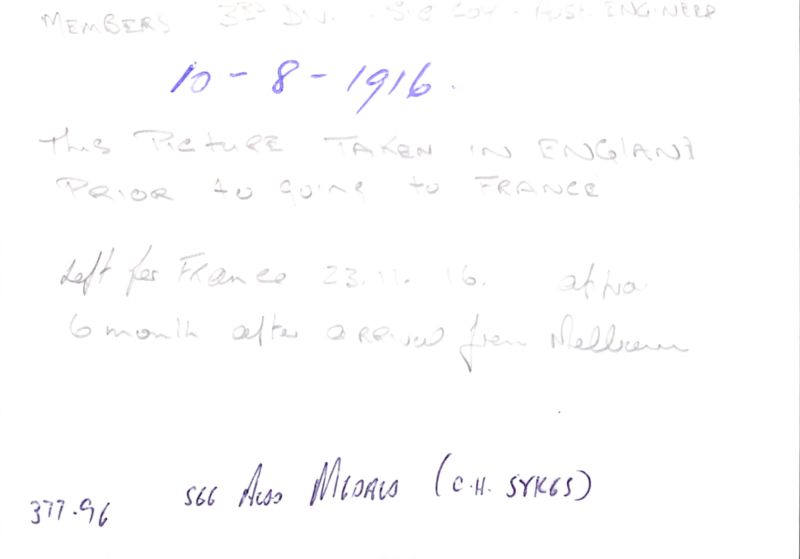 MEMBERS 3RD DIV. SIG COY - AUST. ENGINEER
10-8-1916.
THIS PICTURE TAKEN IN ENGLAND
PRIOR to GOING to FRANCE
Left for France 23.11.16. approx
6 month after arrival from Melbourne
SEE ALSO MEDALS (C.H. SYKES)
377.96